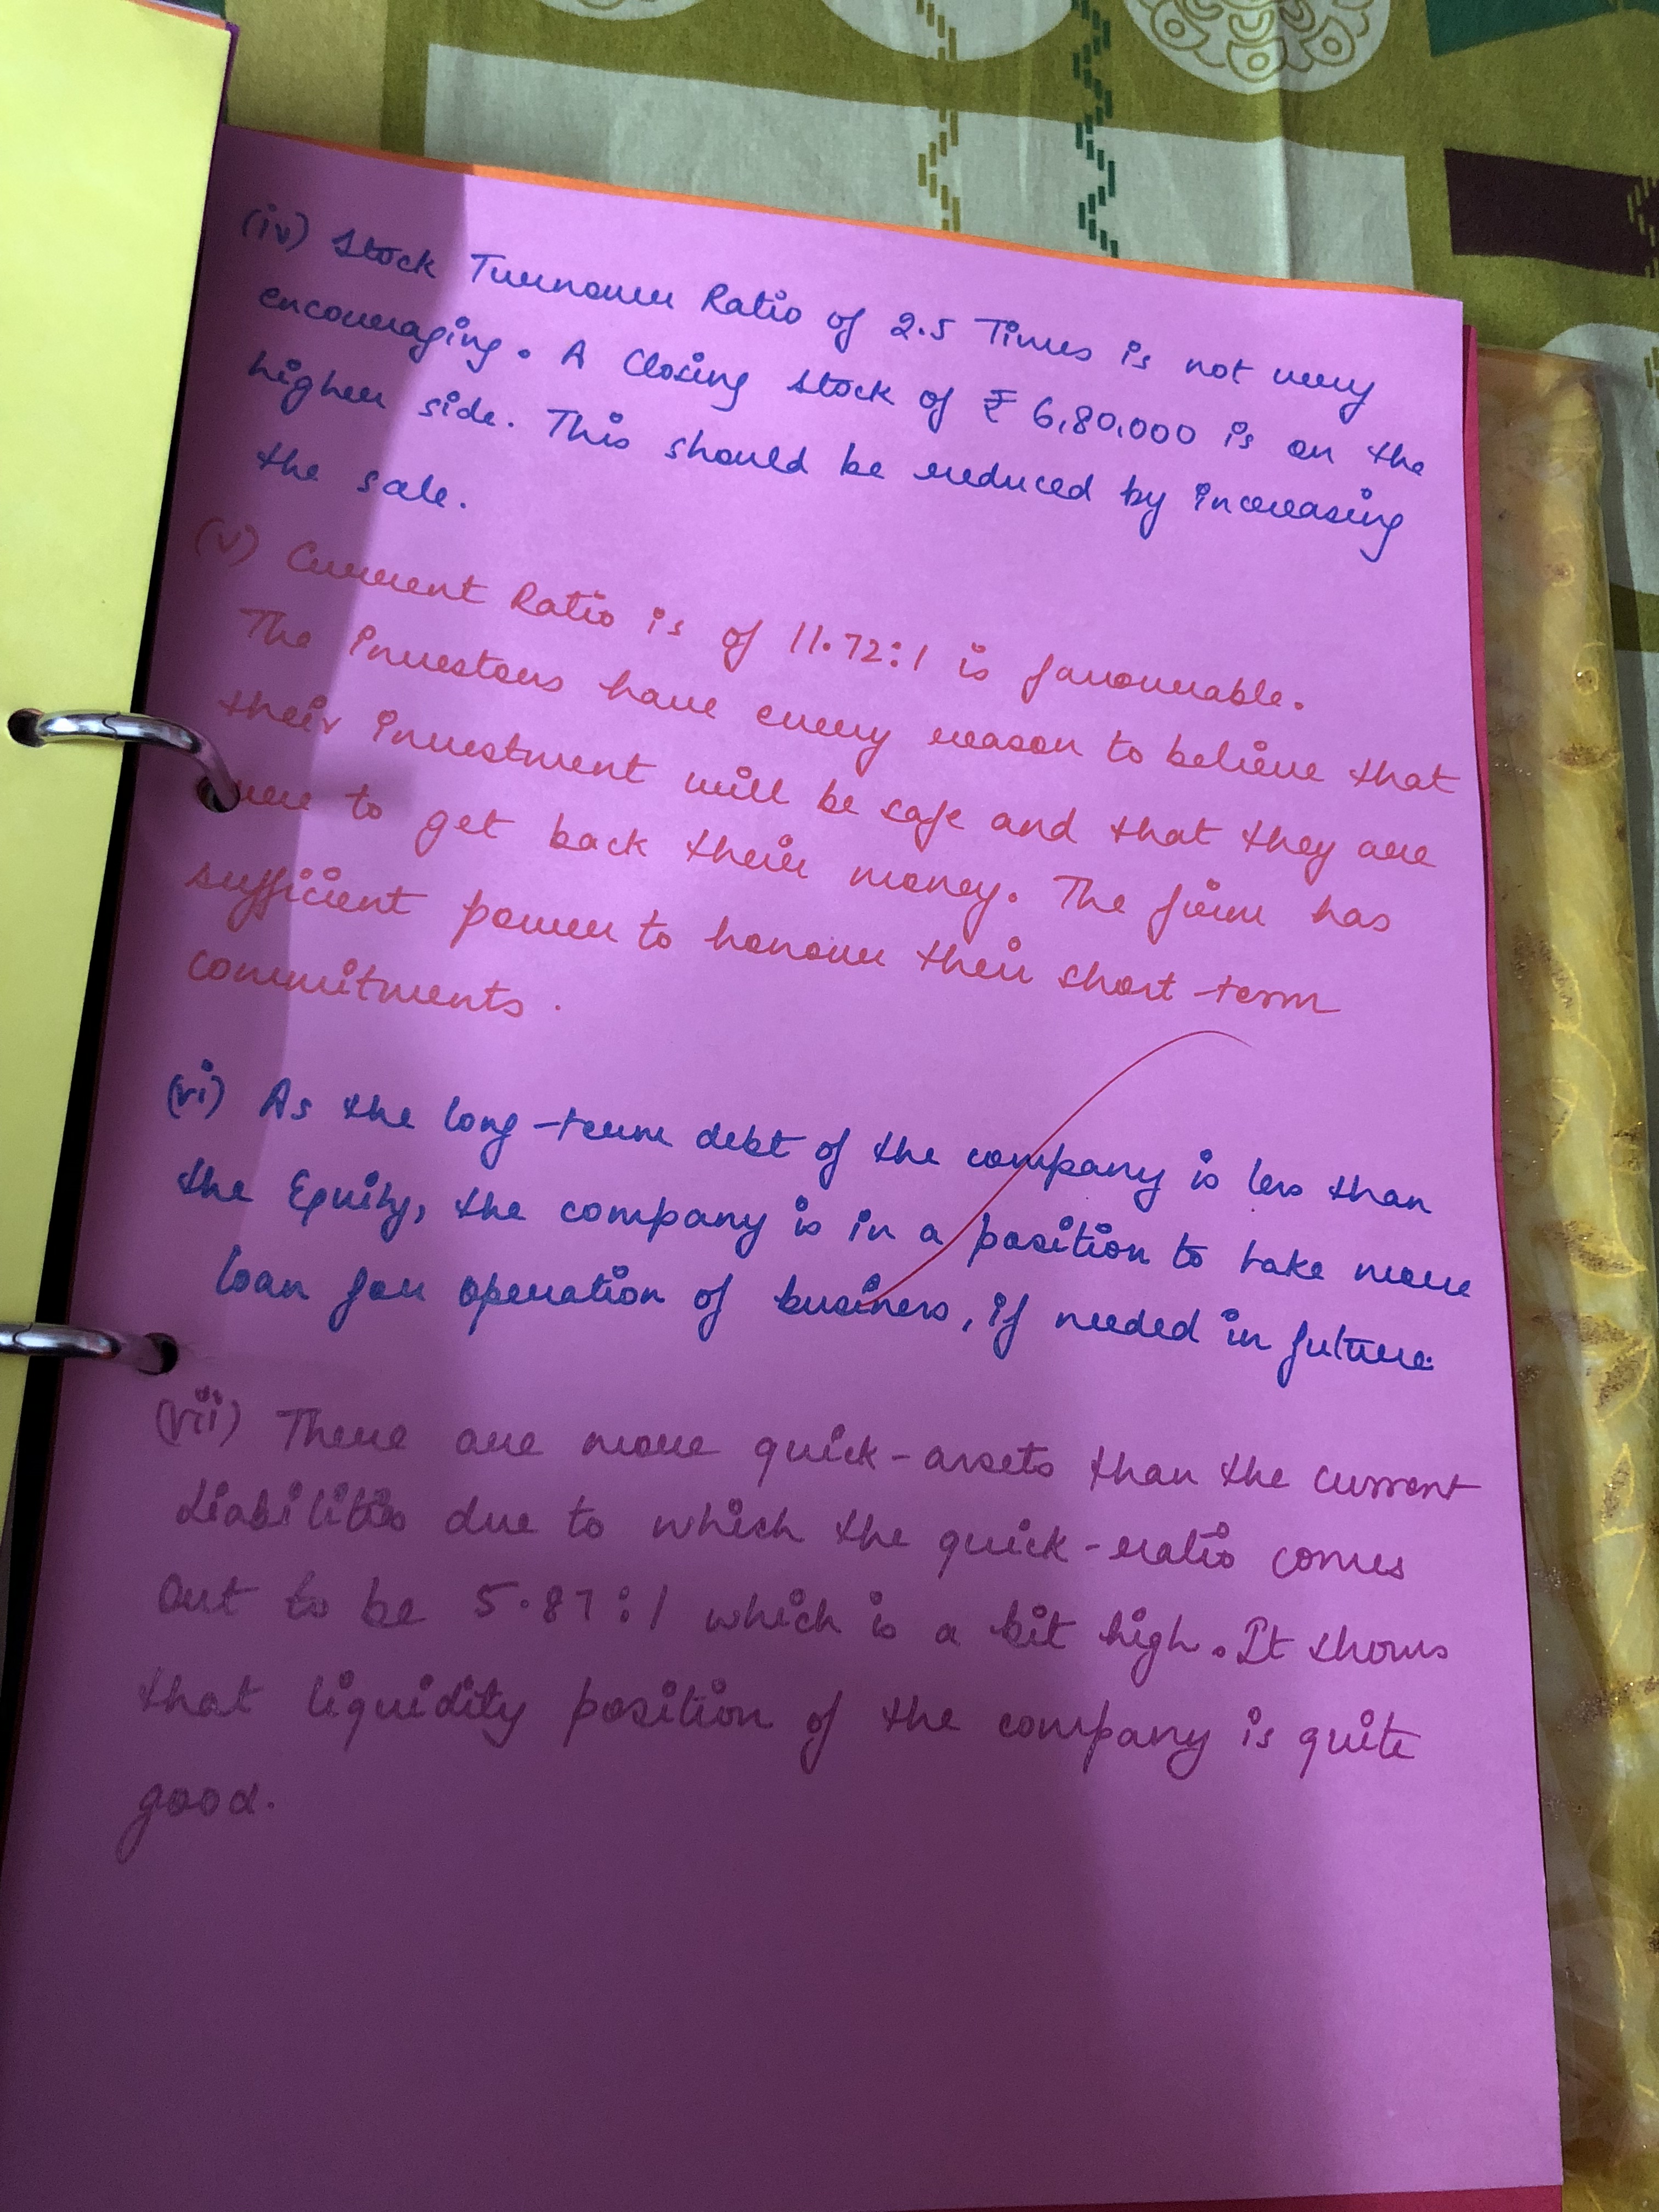 (iv) Stock Turnover Ratio of 2.5 Times is not very
encouraging. A Closing stock of ₹ 6,80,000 is on the
higher side. This should be reduced by increasing
the sale.
(v) Current Ratio is of 11.72:1 is favourable.
The investors have every reason to believe that
their investment will be safe and that they are
to get back their money. The firm has
sufficient power to honour their short-term
commitments.
(vi) As the long-term debt of the company is less than
the Equity, the company is in a position to take more
loan for operation of business, if needed in future.
(vii) There are more quick-assets than the current
liabilities due to which the quick-ratio comes
out to be 5.87:1 which is a bit high. It shows
that liquidity position of the company is quite
good.